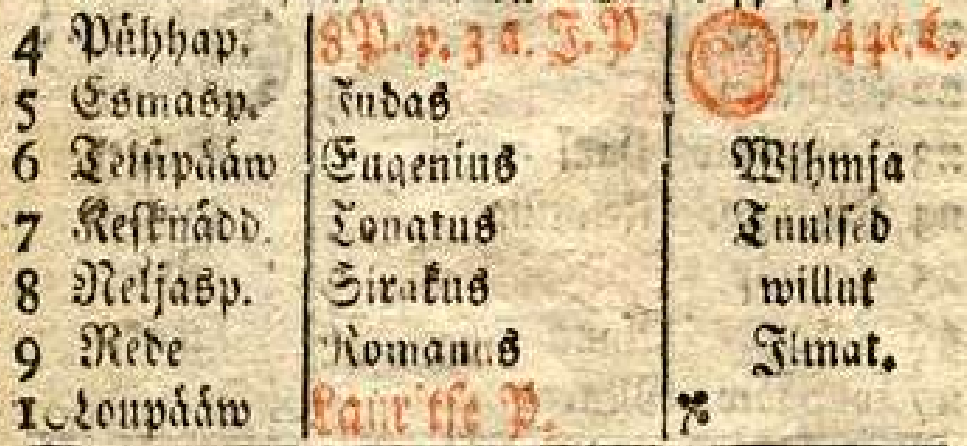 4 Pühhap. 8 P. p. 3 K. J. P 7 44 e. L.
5 Esmasp. Judas
6 Teisipääw Eugenius Wihmja
7 Kesknädd. Donatus Tuulsed
8 Neljasp. Sirakus willut
9 Rede Romanus Ilmat.
10 Loupääw Lauritse P.